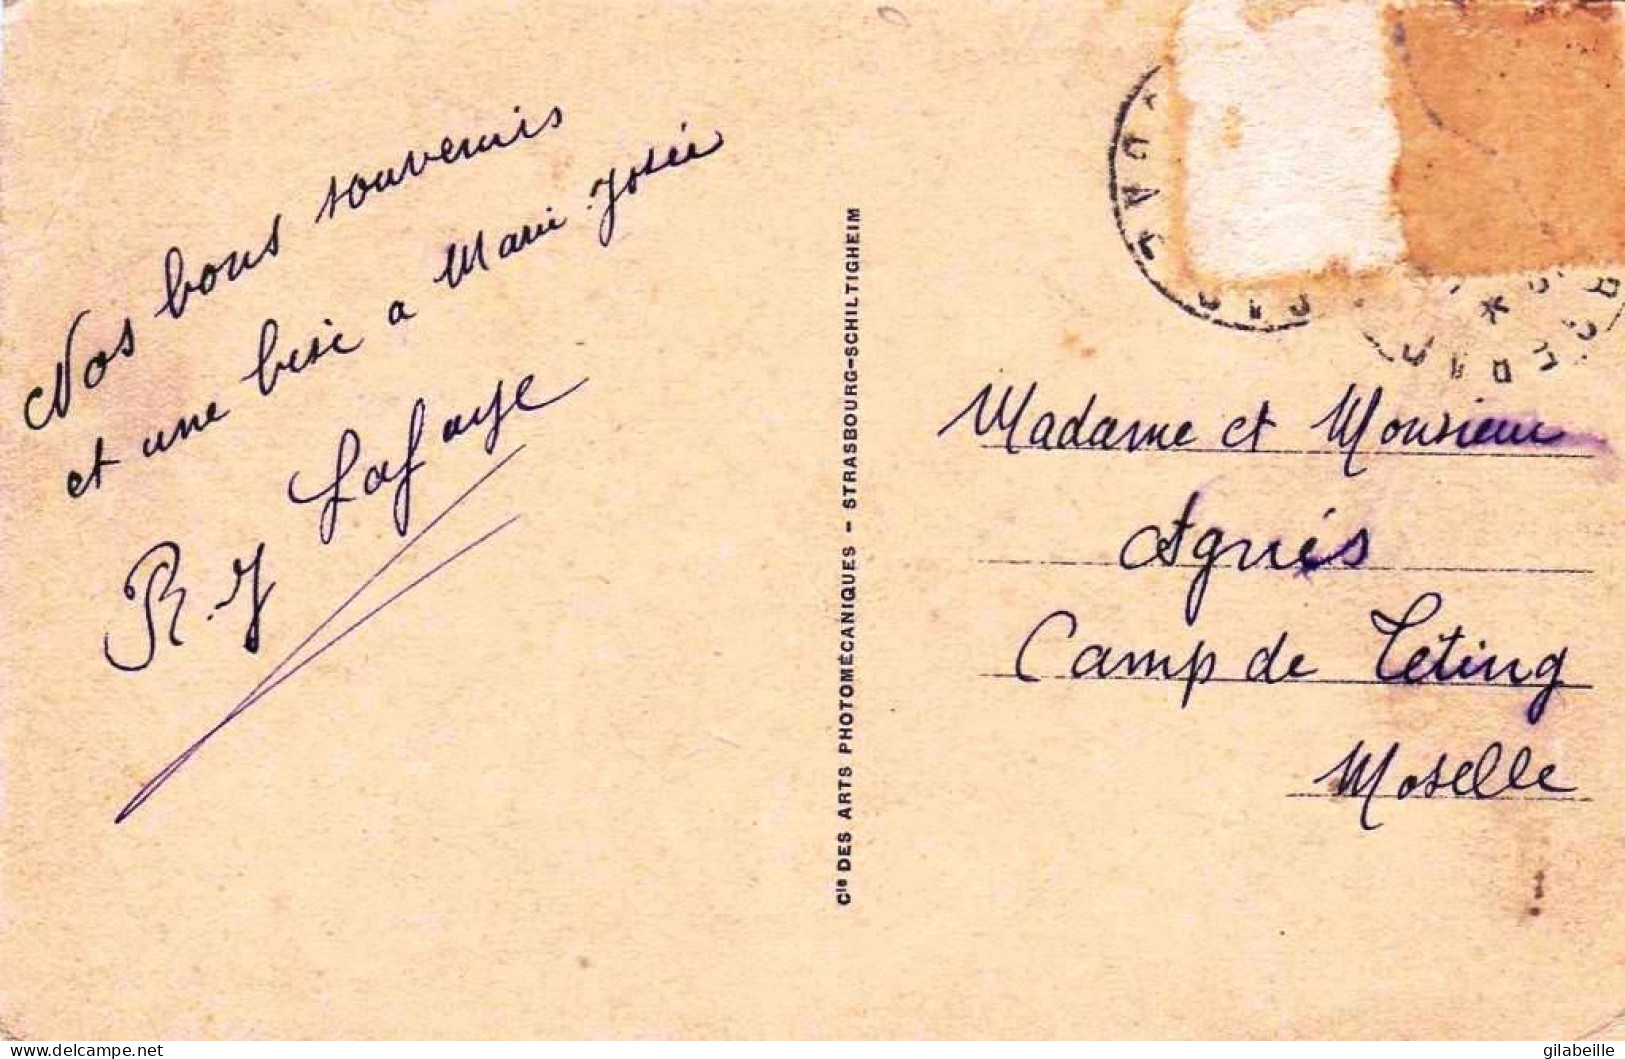 Nos bons souvenirs
et une bise a Marie Josée
R. J Lafaye
Cie DES ARTS PHOTOMÉCANIQUES - STRASBOURG-SCHILTIGHEIM
Madame et Monsieur
Agnés
Camp de Téting
Moselle
delcampe.net
gilabeille